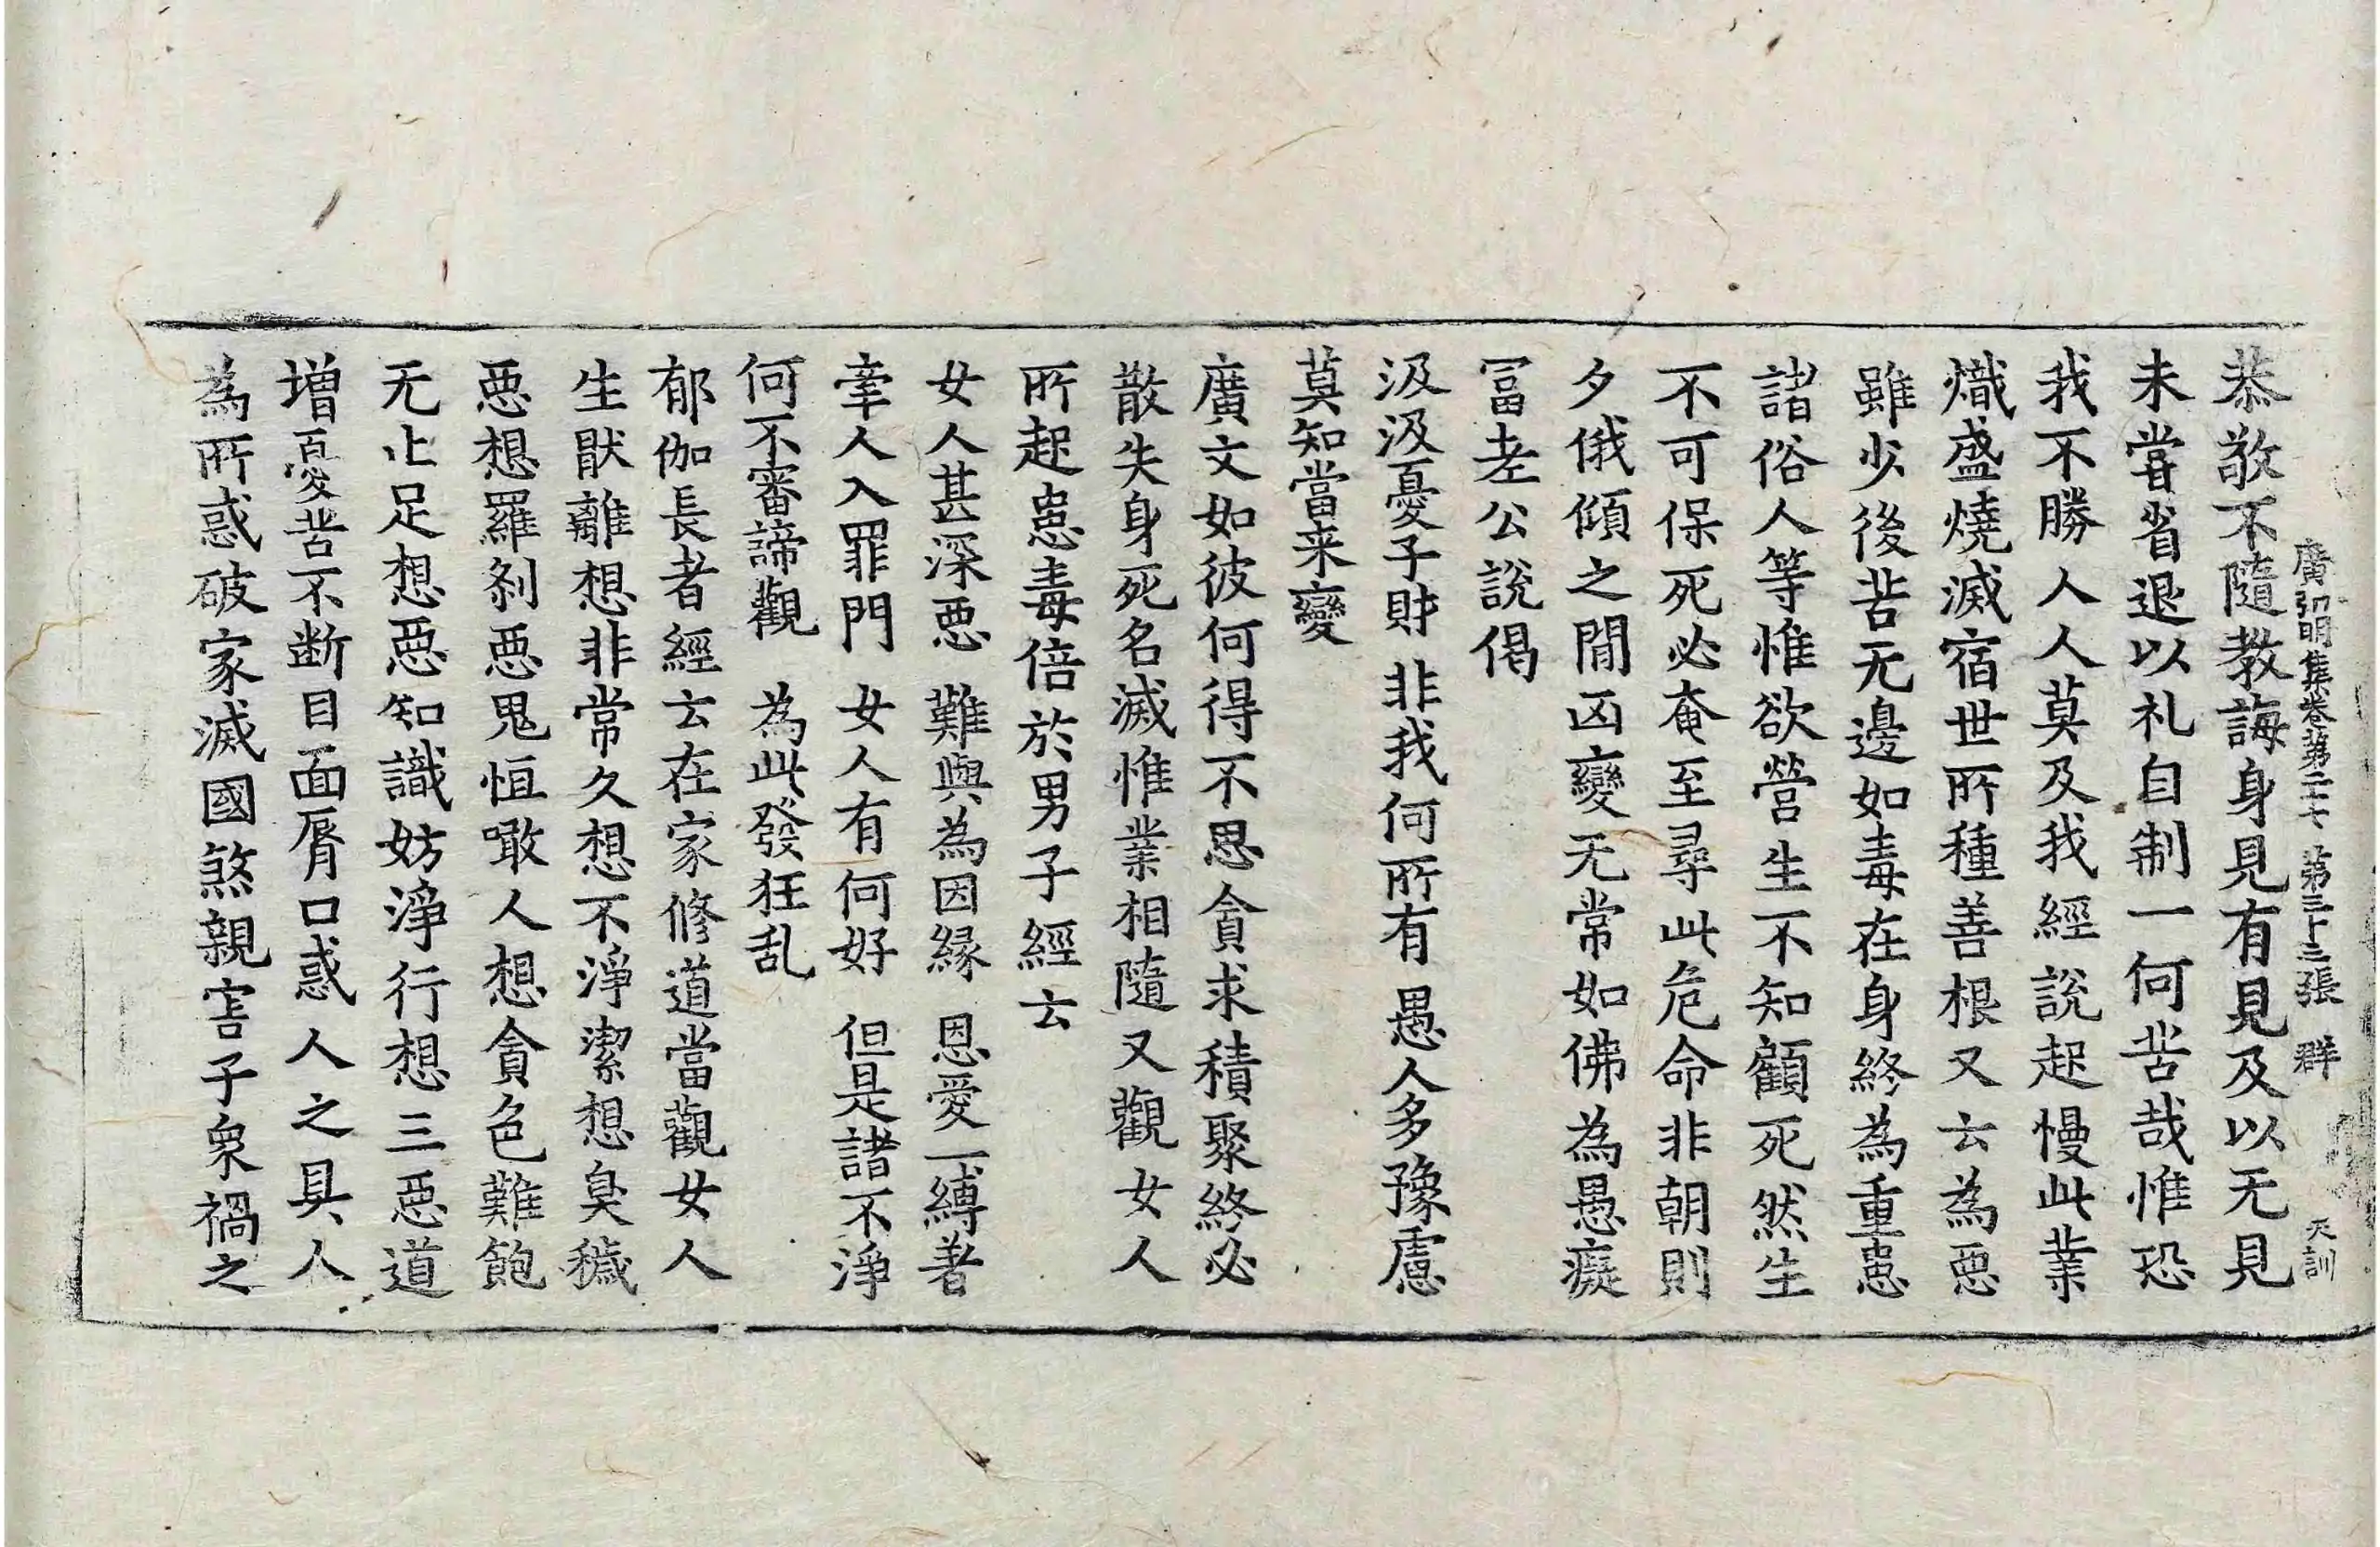 廣弘明集卷第二十七 第三十三張 群
天訓
恭敬不隨教誨身見有見及以无見
未嘗省退以礼自制一何苦哉惟恐
我不勝人人莫及我經說起慢此業
熾盛燒滅宿世所種善根又云為惡
雖少後苦无邊如毒在身終為重患
諸俗人等惟欲營生不知顧死然生
不可保死必奄至尋此危命非朝則
夕俄傾之閒凶變无常如佛為愚癡
冨老公說偈
汲汲憂子財 非我何所有 愚人多豫慮
莫知當来變
廣文如彼何得不思貪求積聚終必
散失身死名滅惟業相隨又觀女人
所起患毒倍於男子經云
女人甚深惡 難與為因縁 恩愛一縛著
牽人入罪門 女人有何好 但是諸不淨
何不審諦觀 為此發狂乱
郁伽長者經云在家修道當觀女人
生猒離想非常久想不淨潔想臭穢
惡想羅剎惡鬼恒噉人想貪色難飽
无止足想惡知識妨淨行想三惡道
增憂苦不断目面脣口惑人之具人
為所惑破家滅國煞親害子衆禍之